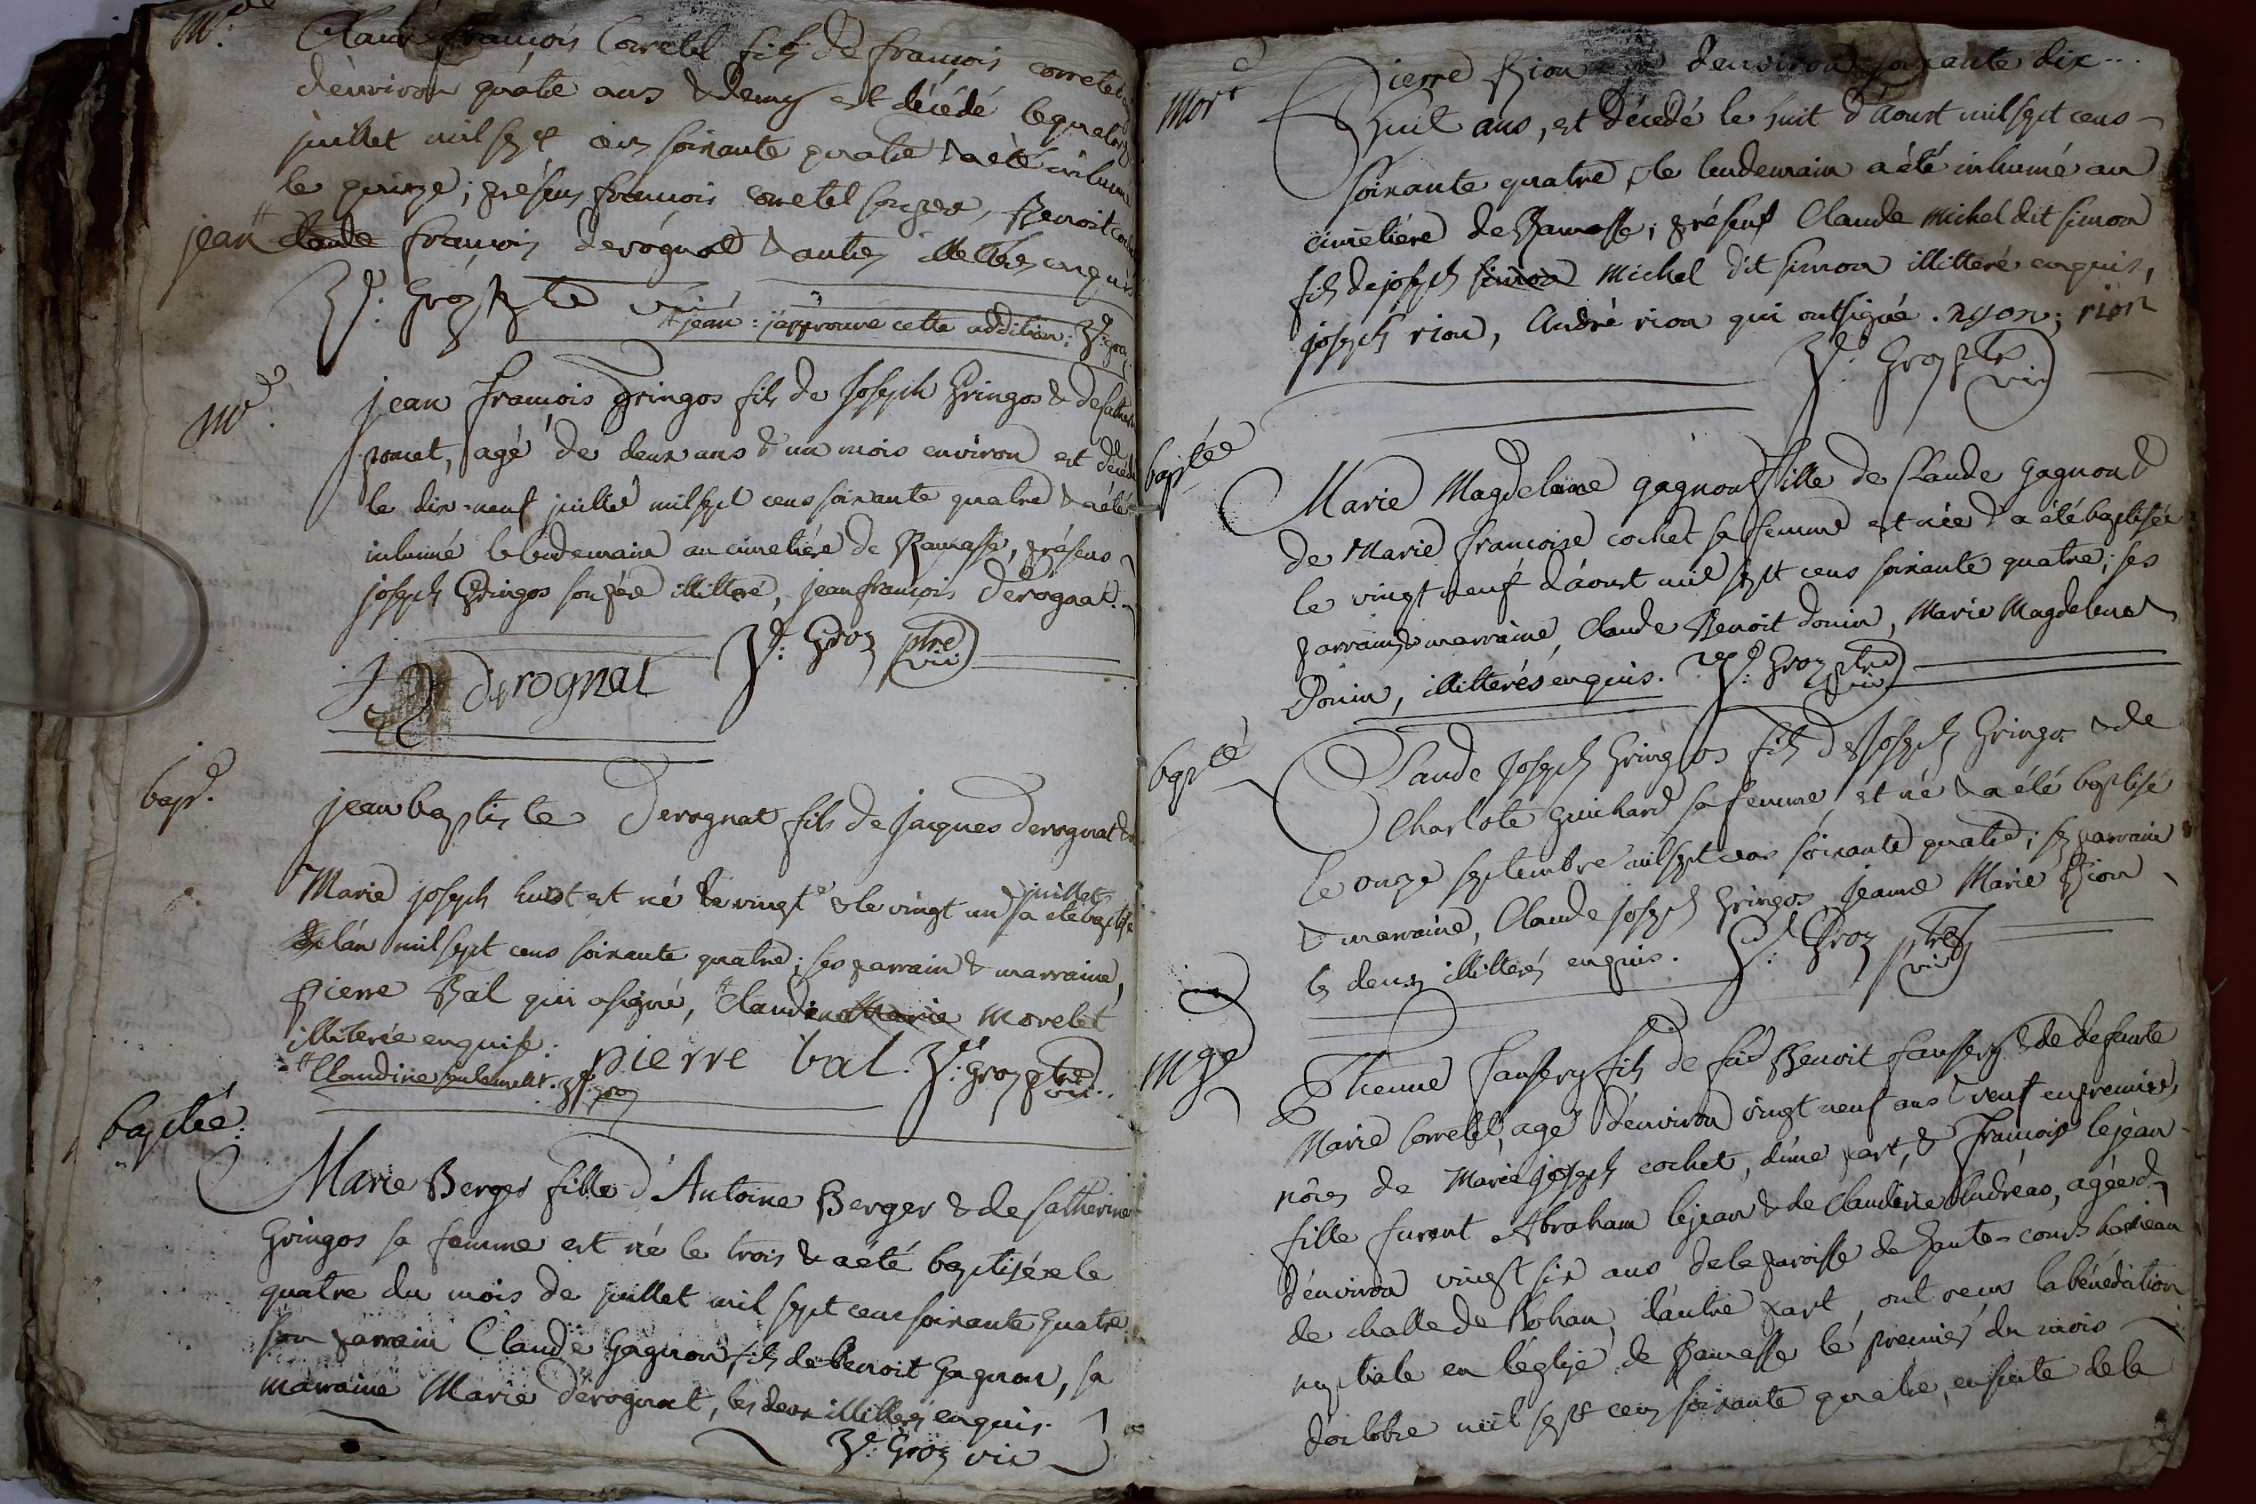 Claude françois Corretel fils de françois corretel
d'environ quatre ans & demy est décédé le quatorze
juillet mil sept cens soixante quatre & a été inhumé
le quinze ; présens françois corretel son père, Benoit
jean Claude françois derognat & autres illettrés enquis
Jh. Groz ptre vic
jean : j'approuve cette addition : Jh. groz
mt.
jean françois Gringos fils de Joseph Gringos & de Catherine
poncet, agé de deux ans & un mois environ est décédé
le dix-neuf juillet mil sept cens soixante quatre & a été
inhumé le lendemain au cimetière de Ramasse, présens
joseph Gringos son père illitteré, jean françois derognat.
derognat Groz ptre vic
bapt.
jean baptiste Derognat fils de jacques derognat &
Marie joseph huot est né le vingt & le vingt un juillet a été baptisé
de l'an mil sept cens soixante quatre ; ses parrain & marraine,
pierre Bal qui a signé, Claudine Marie Morelet
illiterée enquise.
Claudine seulement. groz
pierre bal. Groz ptre vic.
baptée.
Marie Berger fille d'Antoine Berger & de Catherine
Gringos sa femme est né le trois & a été baptisée le
quatre du mois de juillet mil sept cens soixante quatre
son parrain Claude Gagnon fils de benoit Gagnon, sa
marraine Marie derognat, les deux illitterés enquis.
Groz vic
mort
Pierre Rion d'environ soixante dix
huit ans, est décédé le huit d'Aoust mil sept cens
soixante quatre & le lendemain a été inhumé au
cimetière de Ramasse ; présens Claude Michel dit simon
fils de joseph simon Michel dit simon illitteré enquis,
joseph rion, André rion qui ont signé. ryon ; rion
Groz ptre vic
baptée
Marie Magdelaine gagnon fille de Claude Gagnon &
de Marie francoise cochet sa femme est née & a été baptisée
le vingt neuf d'aoust mil sept cens soixante quatre ; ses
parrain & marraine, Claude Benoit Donin, Marie Magdelene
Donin, illitterés enquis. Groz ptre vic
bapté
Claude Joseph Gringos fils de Joseph Gringos & de
Charlote Guichard sa femme, est né & a été baptisé
le onze septembre mil sept cens soixante quatre ; ses parrain
& marraine, Claude joseph Gringos, Jeanne Marie Rion
les deux illitterés enquis. Groz ptre vic
mge
Etienne Jansery fils de feu Benoit Jansery & de defunte
Marie Corretel, agé d'environ vingt neuf ans & veuf en premières
nôces de Marie joseph cochet, d'une part, & françoise lejean
fille furent Abraham lejean & de Claudine Andréas, agée
d'environ vingt six ans, de la paroisse de haute-court hameau
de challe de Bohan, d'autre part, ont reçus la bénédiction
nuptiale en l'église de Ramasse le premier du mois
d'octobre mil sept cens soixante quatre, ensuite de la